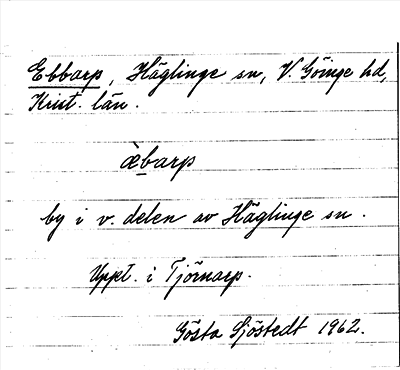 Ebbarp, Häglinge sn, V. Göinge hd,
Krist. län.
æ̀barp
by i v. delen av Häglinge sn.
Uppt. i Tjörnarp.
Gösta Sjöstedt 1962.